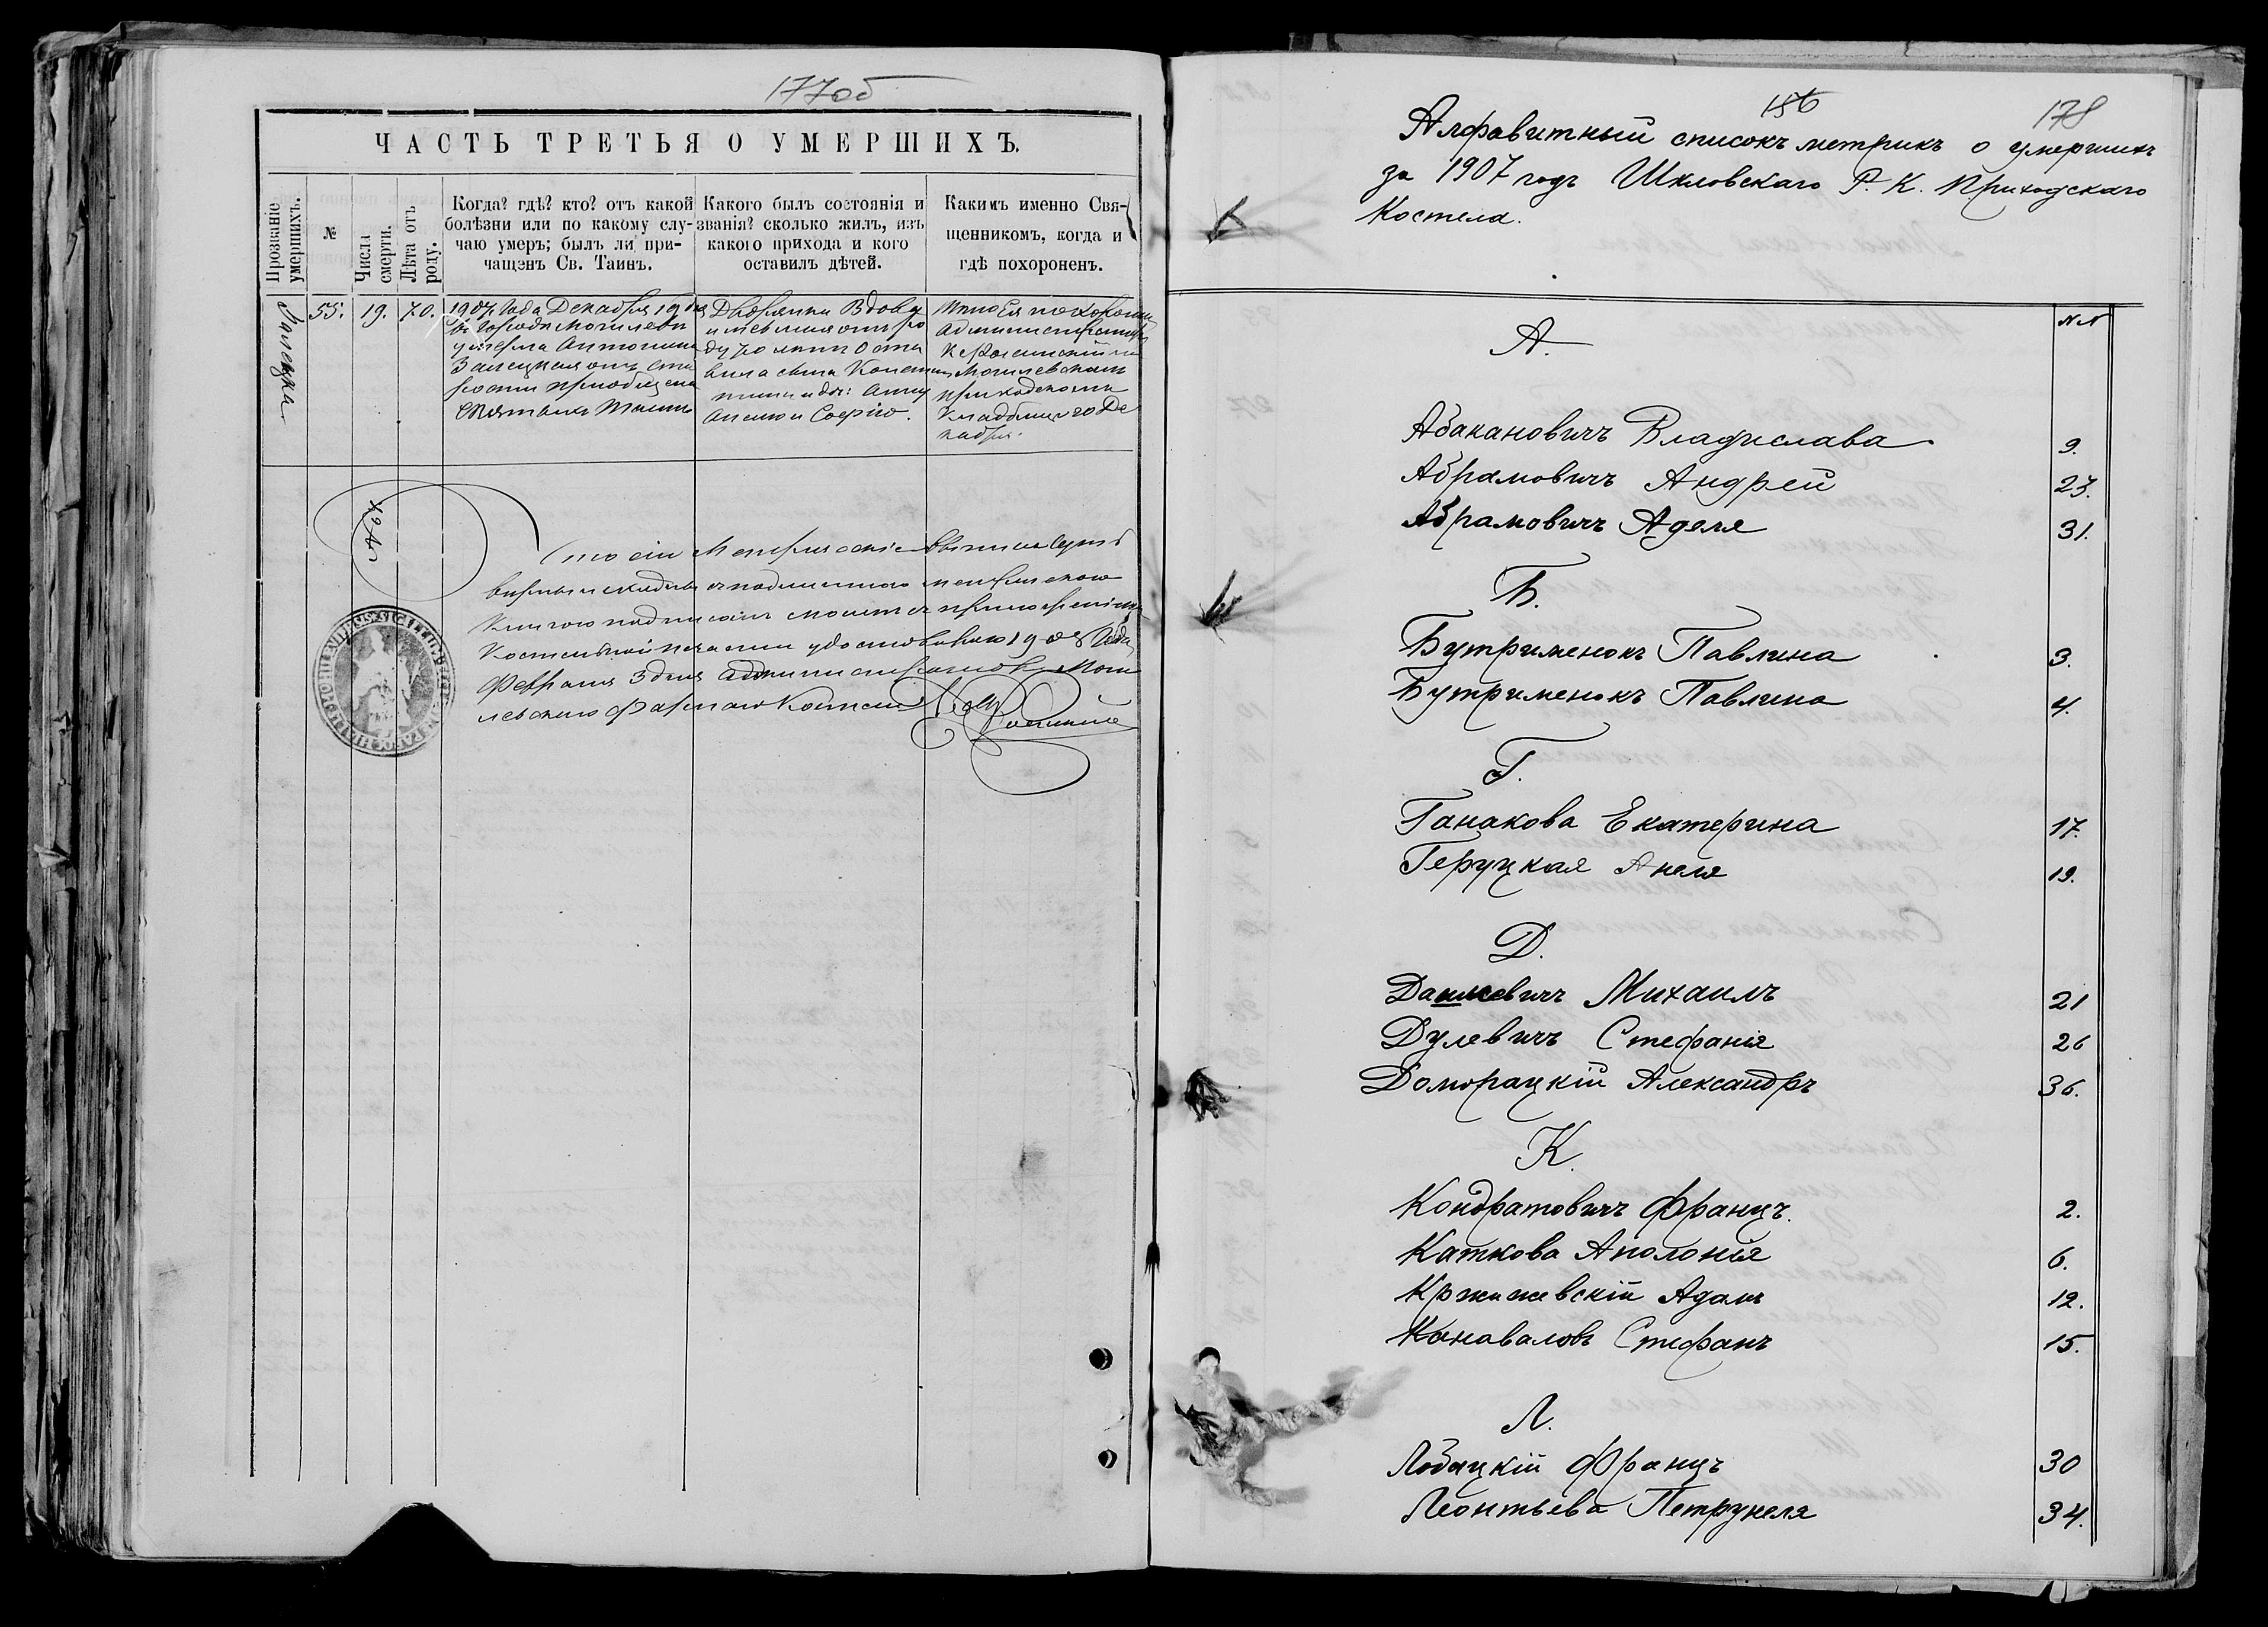 177об
ЧАСТЬ ТРЕТЬЯ О УМЕРШИХЪ.
Прозваніе умершихъ.
№
Числа смерти.
Лѣта отъ роду.
Когда? гдѣ? кто? отъ какой
болѣзни или по какому слу-
чаю умеръ; былъ ли при-
чащенъ Св. Таинъ.
Какого былъ состоянія и
званія? сколько жилъ, изъ
какого прихода и кого
оставилъ дѣтей.
Какимъ именно Свя-
щенникомъ, когда и
гдѣ похороненъ.
55. 19. 70.
1907 Года Декабря 19 дня
въ Городѣ Могилевѣ
умерла Антонина
Залецкая отъ ста
рости приобщена
Святыхъ Таинъ
Дворянка Вдова
имѣвшая отъ ро
ду 70 лѣтъ Оста
вила сына Констан
тина и доч: Анну
и Софію.
Тѣло Ея похоронилъ
Администраторъ
на Могилевскомъ
приходскомъ
Кладбищѣ 20 Де
кабря.
Что сіи Метрическіе выписи суть
вѣрны и сходны съ подлинною метрическою
Книгою подписомъ моимъ съ приложеніемъ
Костельной печати удостовѣряю 1908 Года
Февраля 3 дня Администраторъ Моги
левского Фарнаго Костела
156
178
Алфавитный списокъ метрикъ о умершихъ
за 1907 годъ Шкловскаго Р. К. Приходскаго
Костела.
NN
А.
Абакановичъ Владислава 9.
Абрамовичъ Андрей 23.
Абрамовичъ Аделя 31.
Б.
Бутрименокъ Павлина 3.
Бутрименокъ Павлина 4.
Г.
Ганакова Екатерина 17.
Геруцкая Анеля 19.
Д.
Данилевичъ Михаилъ 21
Дулевичъ Стефанія 26
Доморацкій Александръ 36.
К.
Кондратовичъ Францъ. 2.
Каткова Аполонія 6.
Кржижевскій Адамъ 12.
Коноваловъ Стефанъ 15.
Л.
Лобацкій Францъ 30
Леонтьева Петрунеля 34.